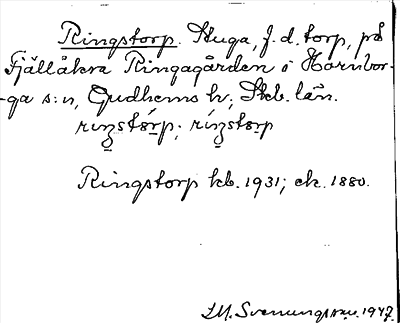 Ringstorp. Stuga, f. d. torp, på
Fjällåkra Ringagården i Hornbor-
-ga s:n, Gudhems h., Skb. län.
rıŋstórp; ríŋstɷrp
Ringstorp kb. 1931; ek. 1880.
I.M. Svenungsson. 1947.